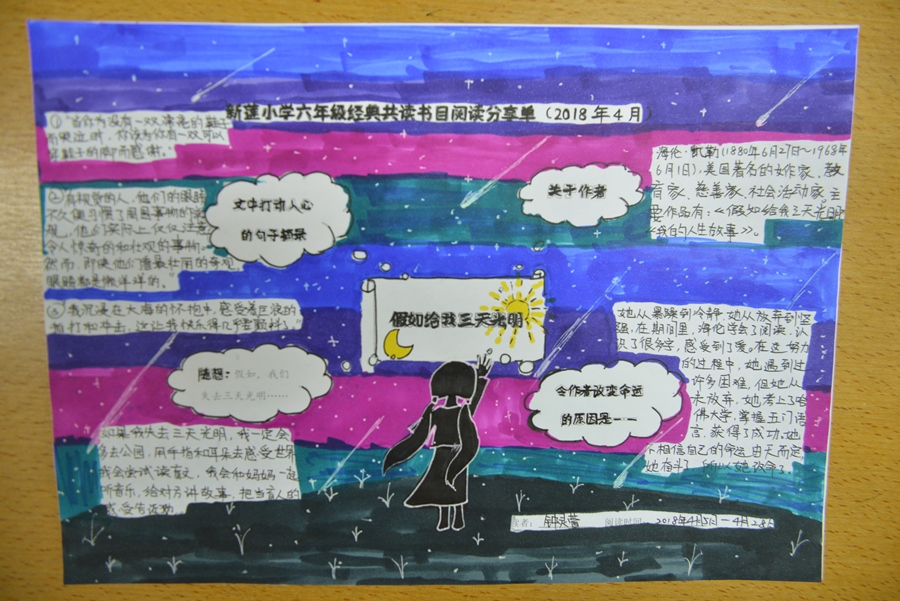 新莲小学六年级经典共读书目阅读分享单（2018年4月）
①"当你为没有一双漂亮的鞋子
而哭泣时，你该为你有一双可以
穿鞋子的脚而感谢。"
文中打动人心
的句子摘录
②有视觉的人，他们的眼睛
不久便习惯了周围事物的
他们实际上仅仅注意
令人惊奇的和壮观的事物。
然而，即使他们看最壮丽的奇观，
眼睛都是懒洋洋的。
③"我沉浸在大海的怀抱中，感受着巨浪的
拍打和冲击，这让我快乐得几乎要颤抖。"
关于作者
海伦·凯勒（1880年6月27日～1968年
6月1日），美国著名的女作家、教
育家、慈善家、社会活动家，主
要作品有：《假如给我三天光明》
《我的人生故事》。
假如给我三天光明
随想：假如，我们
失去三天光明……
如果我失去三天光明，我一定会
去公园，用手指和耳朵去感受世界
我会尝试读盲文，我会和妈妈一起
听音乐，给对方讲故事，把当盲人的
感受告诉她
令作者改变命运
的原因是——
她从暴躁到冷静，她从放弃到坚
强，在期间里，海伦学会了阅读，认
识了很多字，感受到了爱。在这努力
的过程中，她遇到过
许多困难，但她从
未放弃，她考上了哈
佛大学，掌握五门语
言，获得了成功。她
不相信自己的命运由天而定
她奋斗了，所以她改命了
作者：钟灵萱 阅读时间：2018年4月5日—4月28日